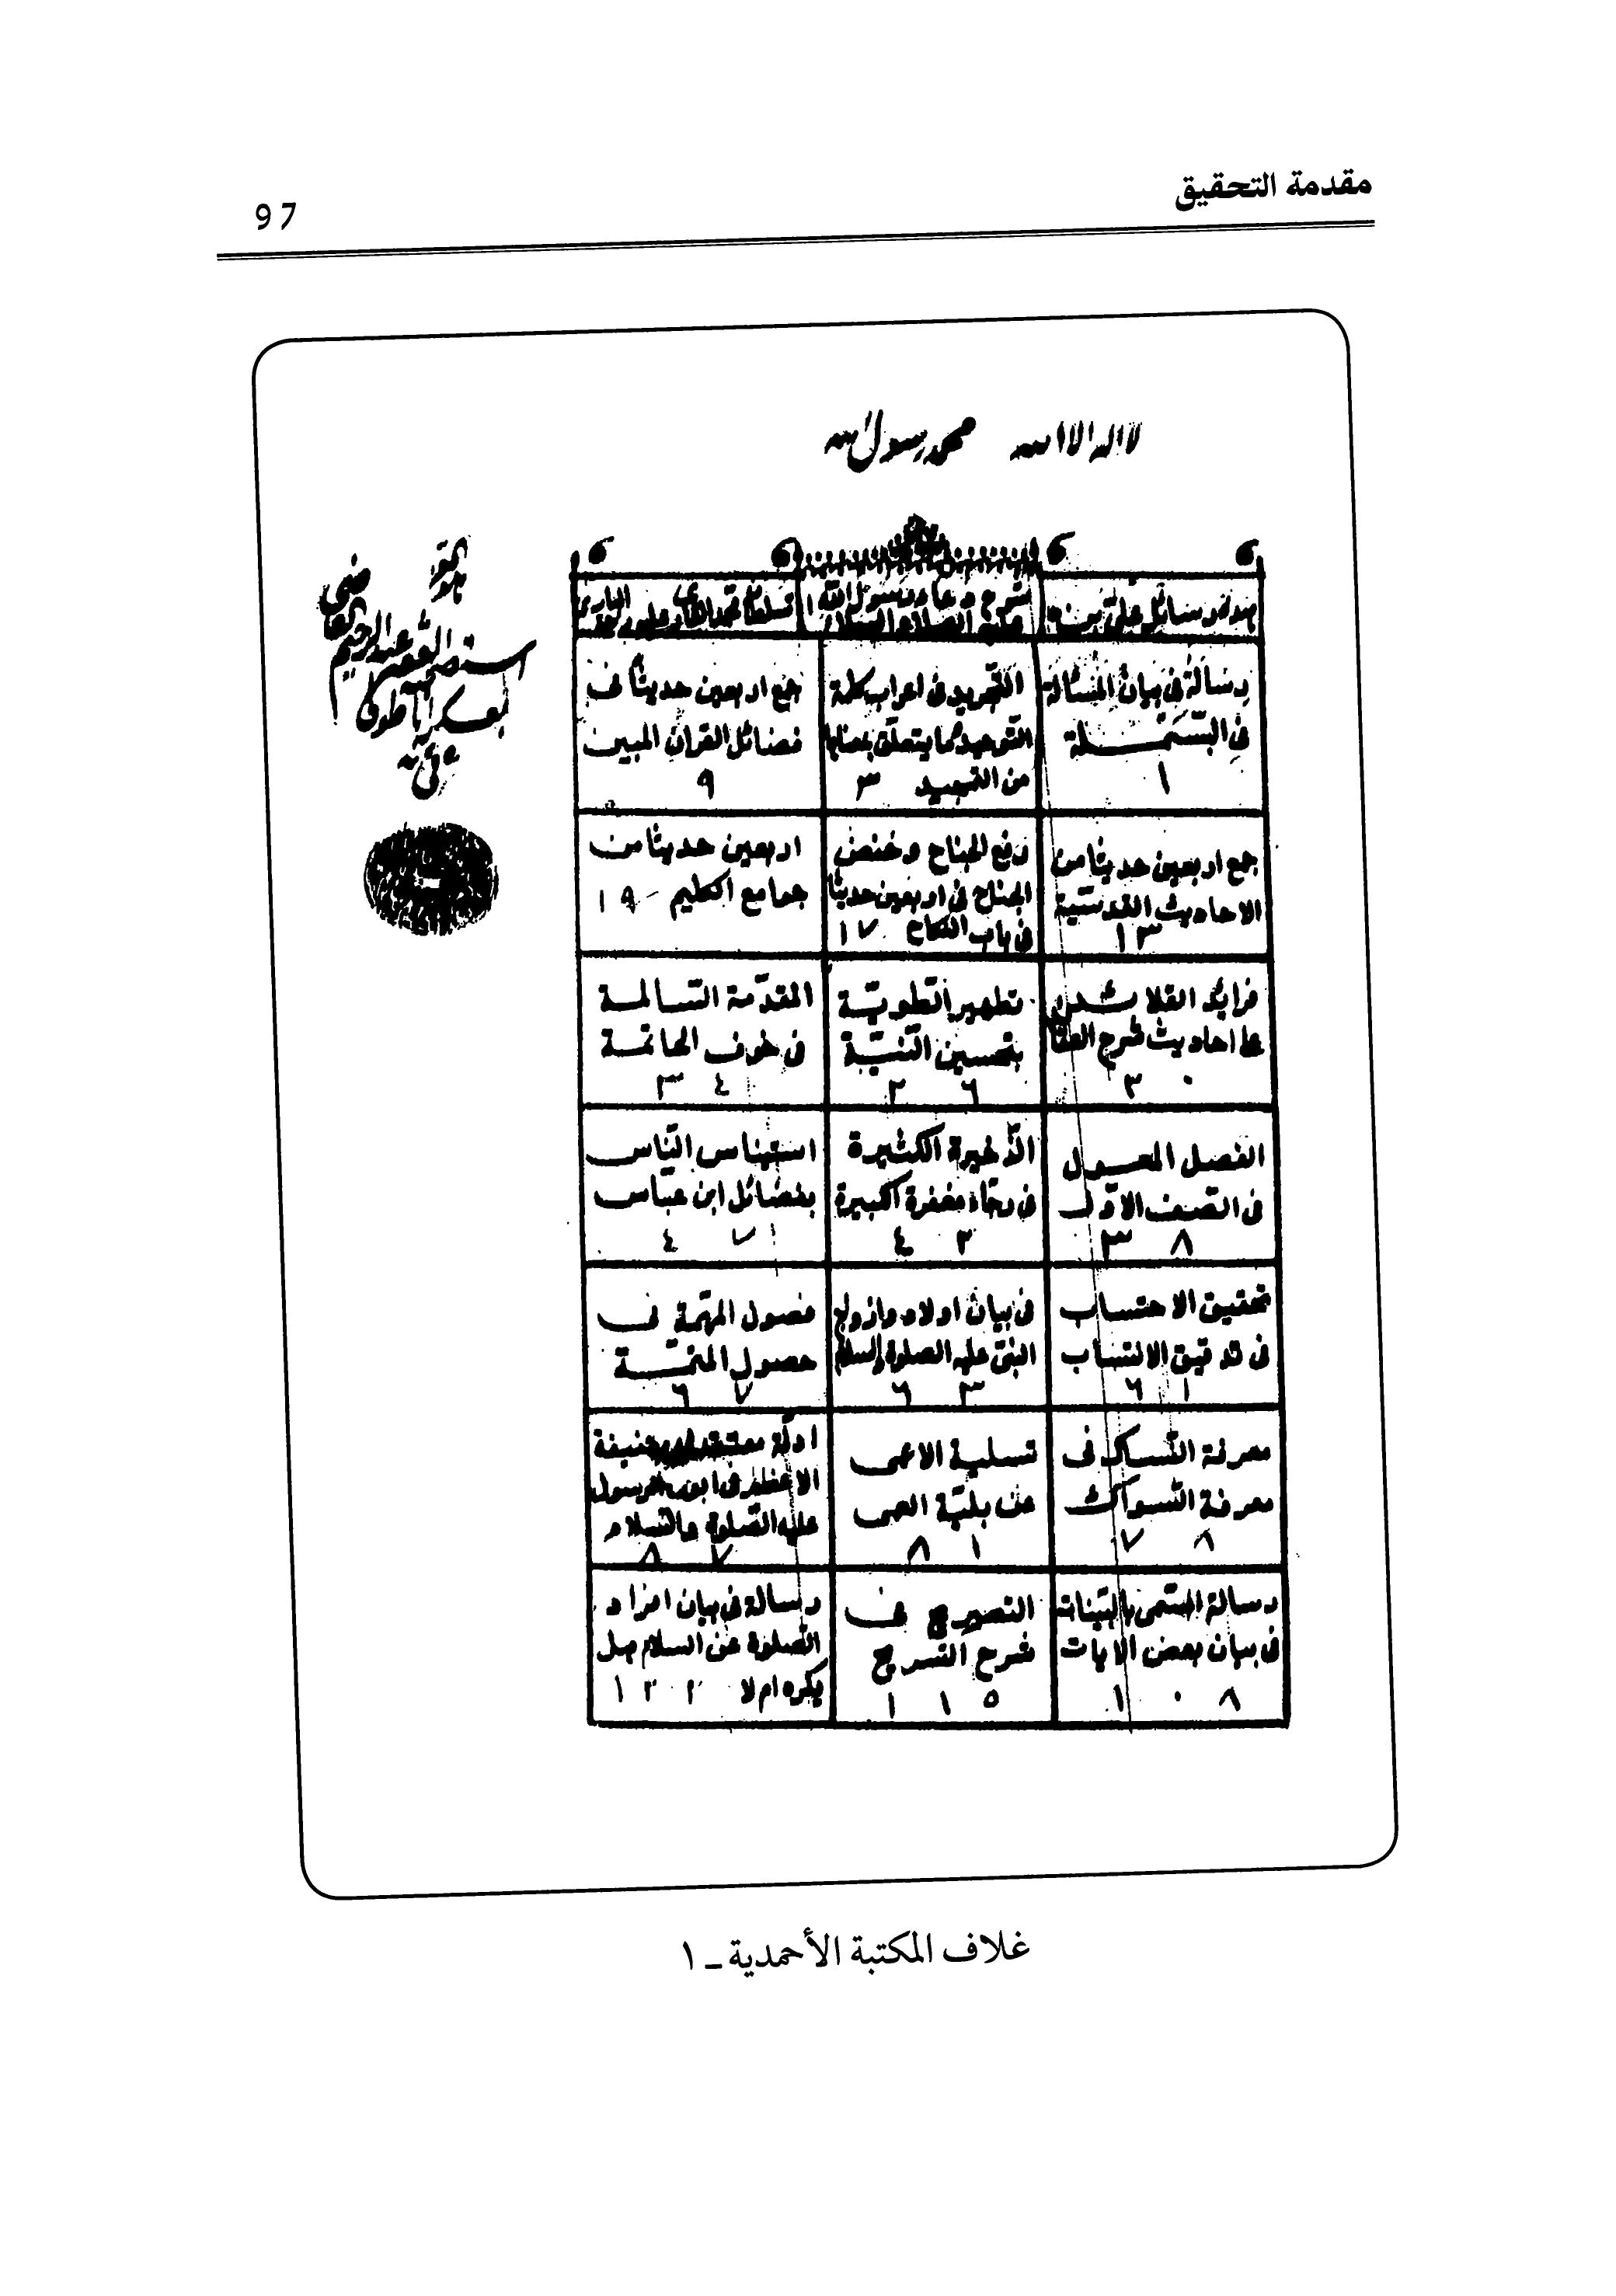 مقدمة التحقيق
97
لا اله الا الله محمد رسول الله
رسالة فى بيان المسئالة
فى البسملة
١
التجريد فى اعراب كلمة
التوحيد وما يتعلق بمعناها
من التمجيد ٣
جمع اربعين حديثا فى
فضائل القران المبين
٩
جمع اربعين حديثا من
الاحاديث القدسية
١٣
رفع الجناح وخفض
الجناح فى اربعين حديثا
فى باب النكاح ١٧
اربعين حديثا من
جوامع الكليم ١٩
فرايد القلائد
على احاديث شرح العقا
٣٠
تطهير الطوية
بتحسين النية
٢٦
المقدمة السالمة
فى خوف الخاتمة
٣٤
الفصل المعول
فى الصف الاول
٣٨
الذخيرة الكثيرة
فى رجاء مغفرة الكبيرة
٤٢
استيناس الناس
بفضائل ابن عباس
٤٧
تحقيق الاحتساب
فى تدقيق الانتساب
٦١
فى بيان اولاد وازواج
النبى عليه الصلوة والسلام
٦٣
فصول المهمة فى
حصول المتمة
٦٧
معرفة النساك فى
معرفة السواك
٧٨
تسلية الاعمى
عن بلية العمى
٨١
ادلة معتقد ابى حنيفة
الاعظم فى ابوى الرسول
عليه الصلوة والسلام
٨٧
رسالة المسمى بالبينات
فى بيان بعض الايات
١٠٨
التصريح فى
شرح التسريح
١١٥
رسالة فى بيان افراد
الصلوة عن السلام هل
يكره ام لا ١٢٢
غلاف المكتبة الأحمدية ـ ١